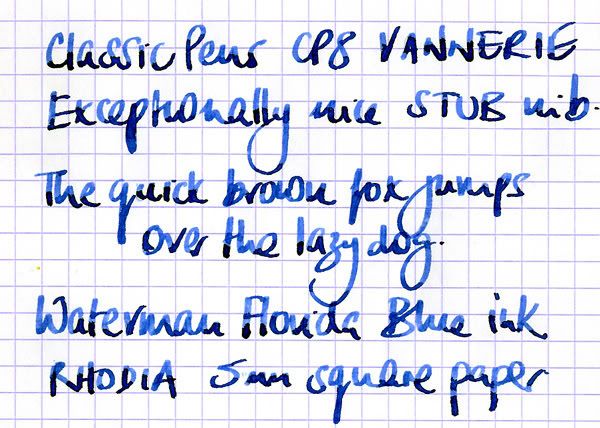 Classic Pens CP8 VANNERIE
Exceptionally nice STUB nib.
The quick brown fox jumps
over the lazy dog.
Waterman Florida Blue ink
RHODIA 5mm square paper